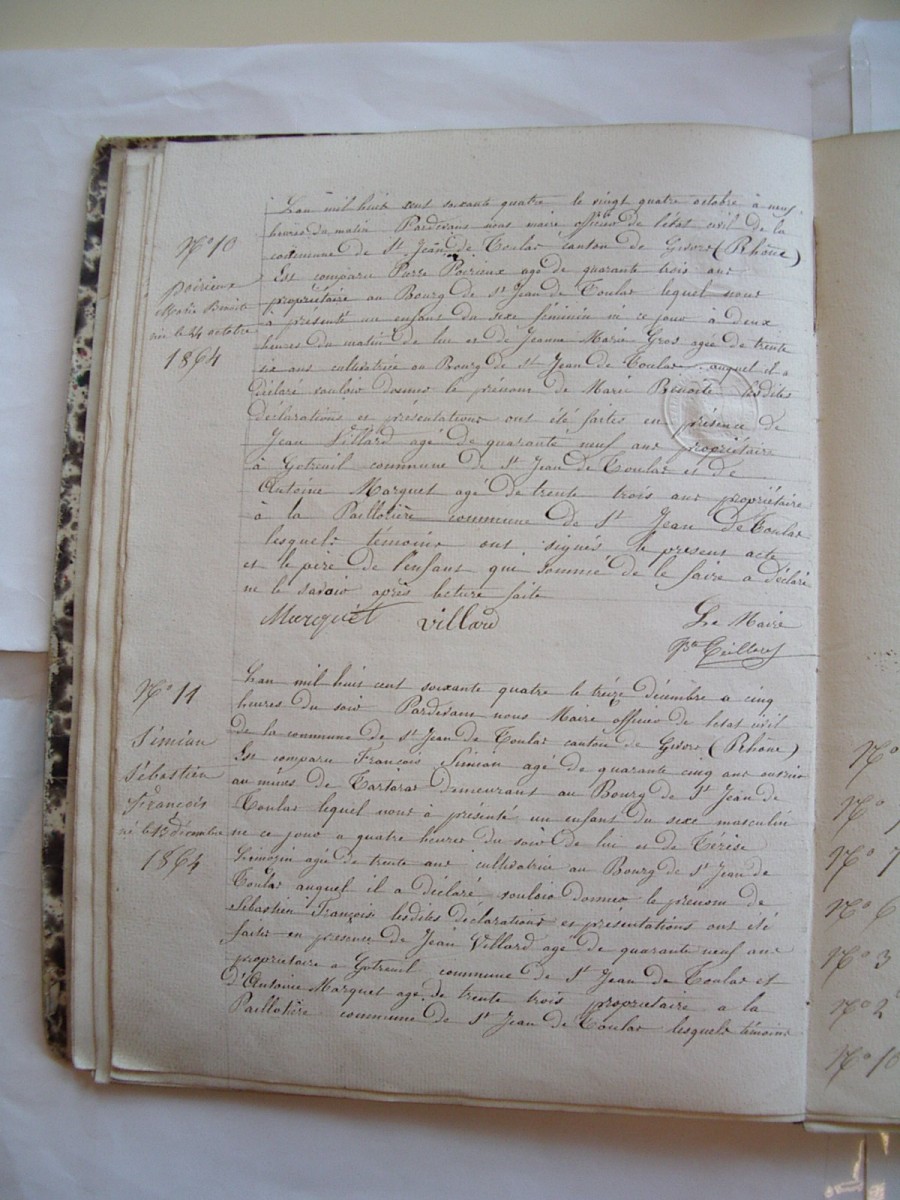 N° 10
Poirieux
Marie Benoite
née le 24 octobre
1864
L'an mil huit cent soixante quatre le vingt quatre octobre à neuf
heures du matin Pardevans nous maire officier de l'état civil de la
commune de St Jean de Toulas canton de Givors (Rhône)
Est comparu Pierre Poirieux agé de quarante trois ans
propriétaire au Bourg de St Jean de Toulas lequel nous
à présenté un enfant du sexe féminin né ce jour à deux
heures du matin de lui et de Jeanne Marie Gros agée de trente
six ans cultivatrice au Bourg de St Jean de Toulas auquel il a
déclaré vouloir donner le prénom de Marie Benoite lesdites
déclarations et présentations ont été faites en présence de
Jean Villard agé de quarante neuf ans propriétaire
à Gotreuil commune de St Jean de Toulas et de
Antoine Marquet agé de trente trois ans propriétaire
à la Paillotière commune de St Jean de Toulas
lesquels témoins ont signés le present acte
et le père de l'enfant qui sommé de le faire a déclaré
ne le savoir après lecture faite
Marquet Villard Le Maire
N° 11
Simian
Sébastien
François
né le 13 décembre
1864
L'an mil huit cent soixante quatre le treize décembre a cinq
heures du soir Pardevans nous Maire officier de l'etat civil
de la commune de St Jean de Toulas canton de Givors (Rhône)
Est comparu François Simian agé de quarante cinq ans ouvrier
au mines de Tartaras demeurant au Bourg de St Jean de
Toulas lequel nous à présenté un enfant du sexe masculin
né ce jour a quatre heures du soir de lui et de Térèse
Limozin agée de trente ans cultivatrice au Bourg de St Jean de
Toulas auquel il a déclaré vouloir donner le prenom de
Sébastien François lesdites déclarations et présentations ont été
faites en presence de Jean Villard agé de quarante neuf ans
propriétaire a Gotreuil commune de St Jean de Toulas et
d'Antoine Marquet agé de trente trois propriétaire a la
Paillotière commune de St Jean de Toulas lesquels témoins
N°
N°
N° 7
N° 6
N° 3
N° 2
N° 10